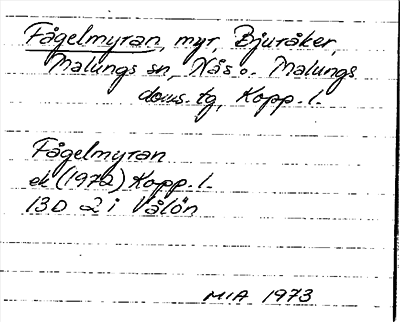 Fågelmyran, myr, Bjuråker,
Malungs sn, Nås o. Malungs
doms. tg, Kopp. l.
Fågelmyran
ek (1972) Kopp. l.
13D 2i Vålön
MIA 1973